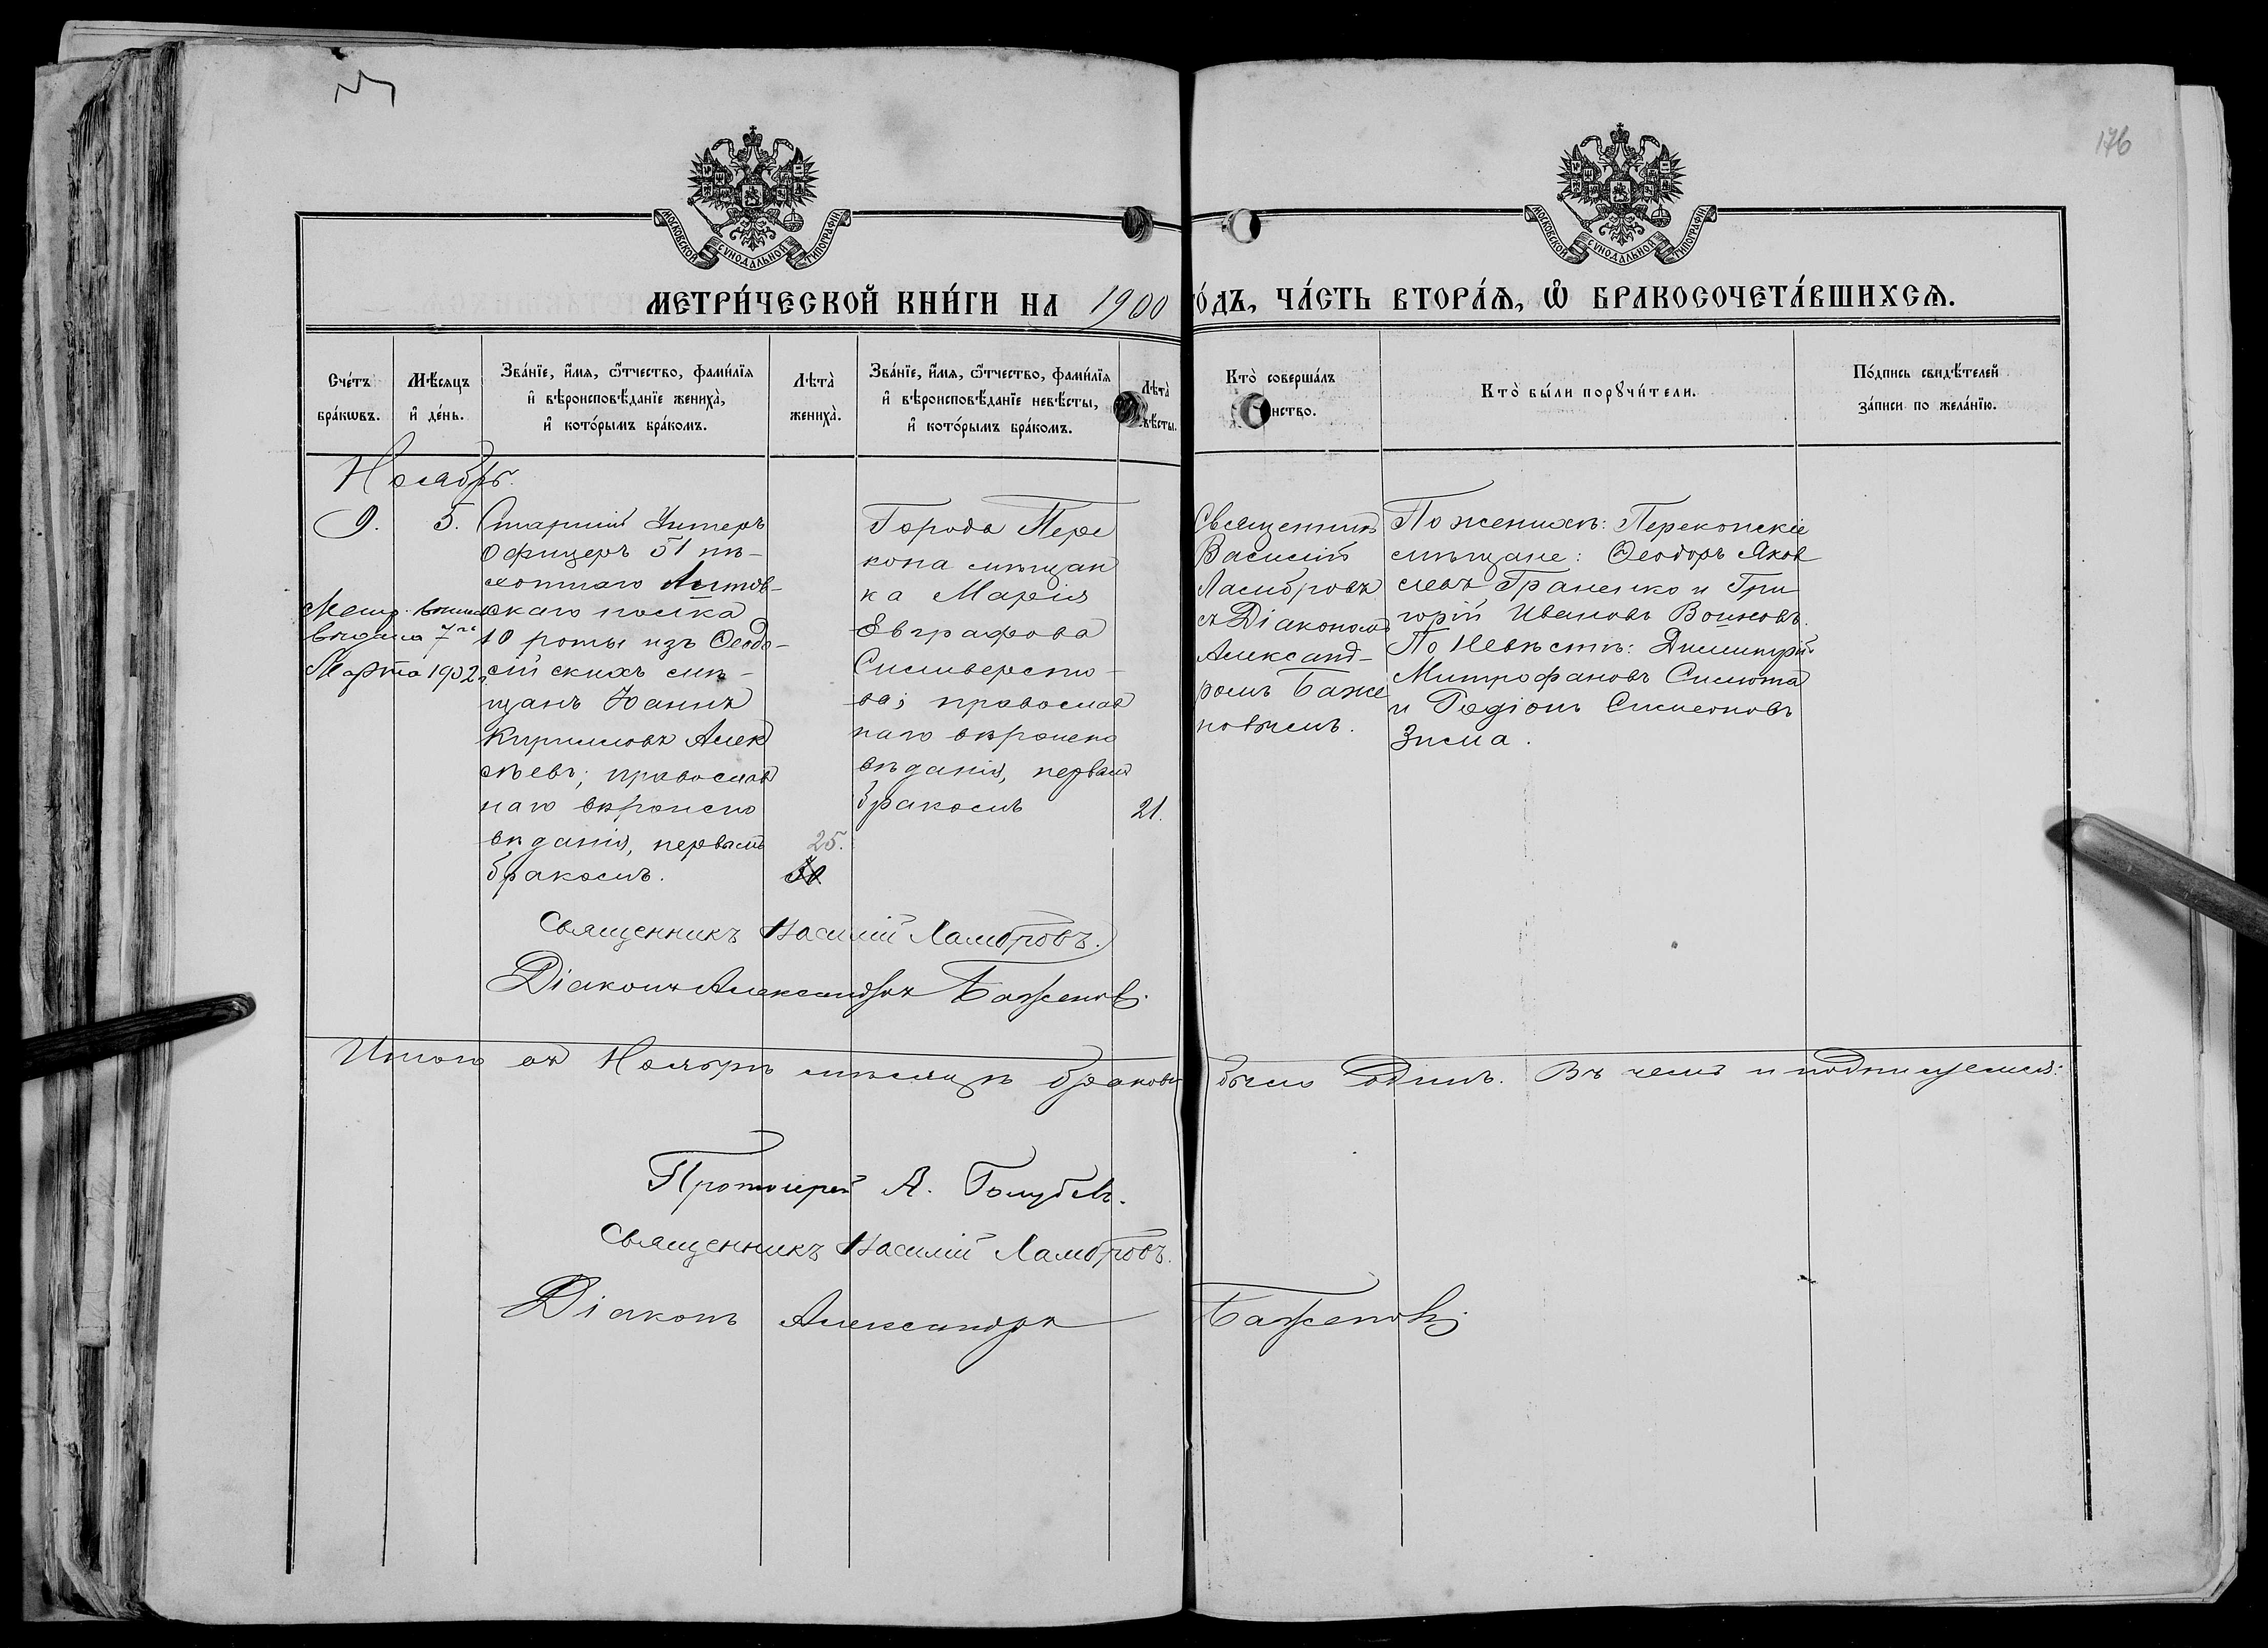 176
МОСКОВСКОЙ СѴНОДАЛЬНОЙ ТИПОГРАФІИ
МОСКОВСКОЙ СѴНОДАЛЬНОЙ ТИПОГРАФІИ
МЕТРИ́ЧЕСКОЙ КНИ́ГИ НА 1900 ГО́ДЪ, ЧА́СТЬ ВТОРА́Ѧ, Ѡ҆ БРАКОСОЧЕТА́ВШИХСѦ.
Сче́тъ бра́кѡвъ.
Мѣ́сяцъ и҆ де́нь.
Зва́нїе, и҆́мя, ѻ҆́тчество, фами́лїя и҆ вѣроисповѣ́данїе жениха̀, и҆ кото́рымъ бра́комъ.
Лѣта̀ жениха̀.
Зва́нїе, и҆́мя, ѻ҆́тчество, фами́лїя и҆ вѣроисповѣ́данїе невѣ́сты, и҆ кото́рымъ бра́комъ.
Лѣта̀ вѣ́сты.
Кто̀ соверша́лъ нство.
Кто̀ бы́ли порꙋчи́тели.
По́дпись свидѣ́телей за́писи по жела́нїю.
Ноябрь.
9.
5.
Метр. выпись
выдана 7го
Марта 1902 г.
Старшій Унтеръ
Офицеръ 51 пѣ-
хотнаго Литов-
скаго полка
10 роты изъ Ѳеодо-
сійскихъ мѣ-
щанъ Іоаннъ
Кирилловъ Алек
сѣевъ; православ
наго вѣроиспо
вѣданія, первымъ
бракомъ.
25.
30
Города Пере
копа мѣщан
ка Марія
Евграфова
Сильверсто-
ва; православ
наго вѣроиспо
вѣданія, первымъ
бракомъ
21.
Священникъ
Василій
Ламбровъ
съ Діакономъ
Александ-
ромъ Баже
новымъ.
По женихѣ: Перекопскіе
мѣщане: Ѳеодоръ Яков
левъ Граненко и Гри
горій Ивановъ Войновъ.
По Невѣстѣ: Димитрій
Митрофановъ Силюта
и Родіонъ Симеоновъ
Зима.
Священникъ Василій Ламбровъ.
Діаконъ Александръ Баженовъ.
Итого въ Ноябрѣ мѣсяцѣ браковъ было одинъ. Въ чемъ и подписуемся:
Протоіерей А. Голубевъ.
Священникъ Василій Ламбровъ.
Діаконъ Александръ Баженовъ